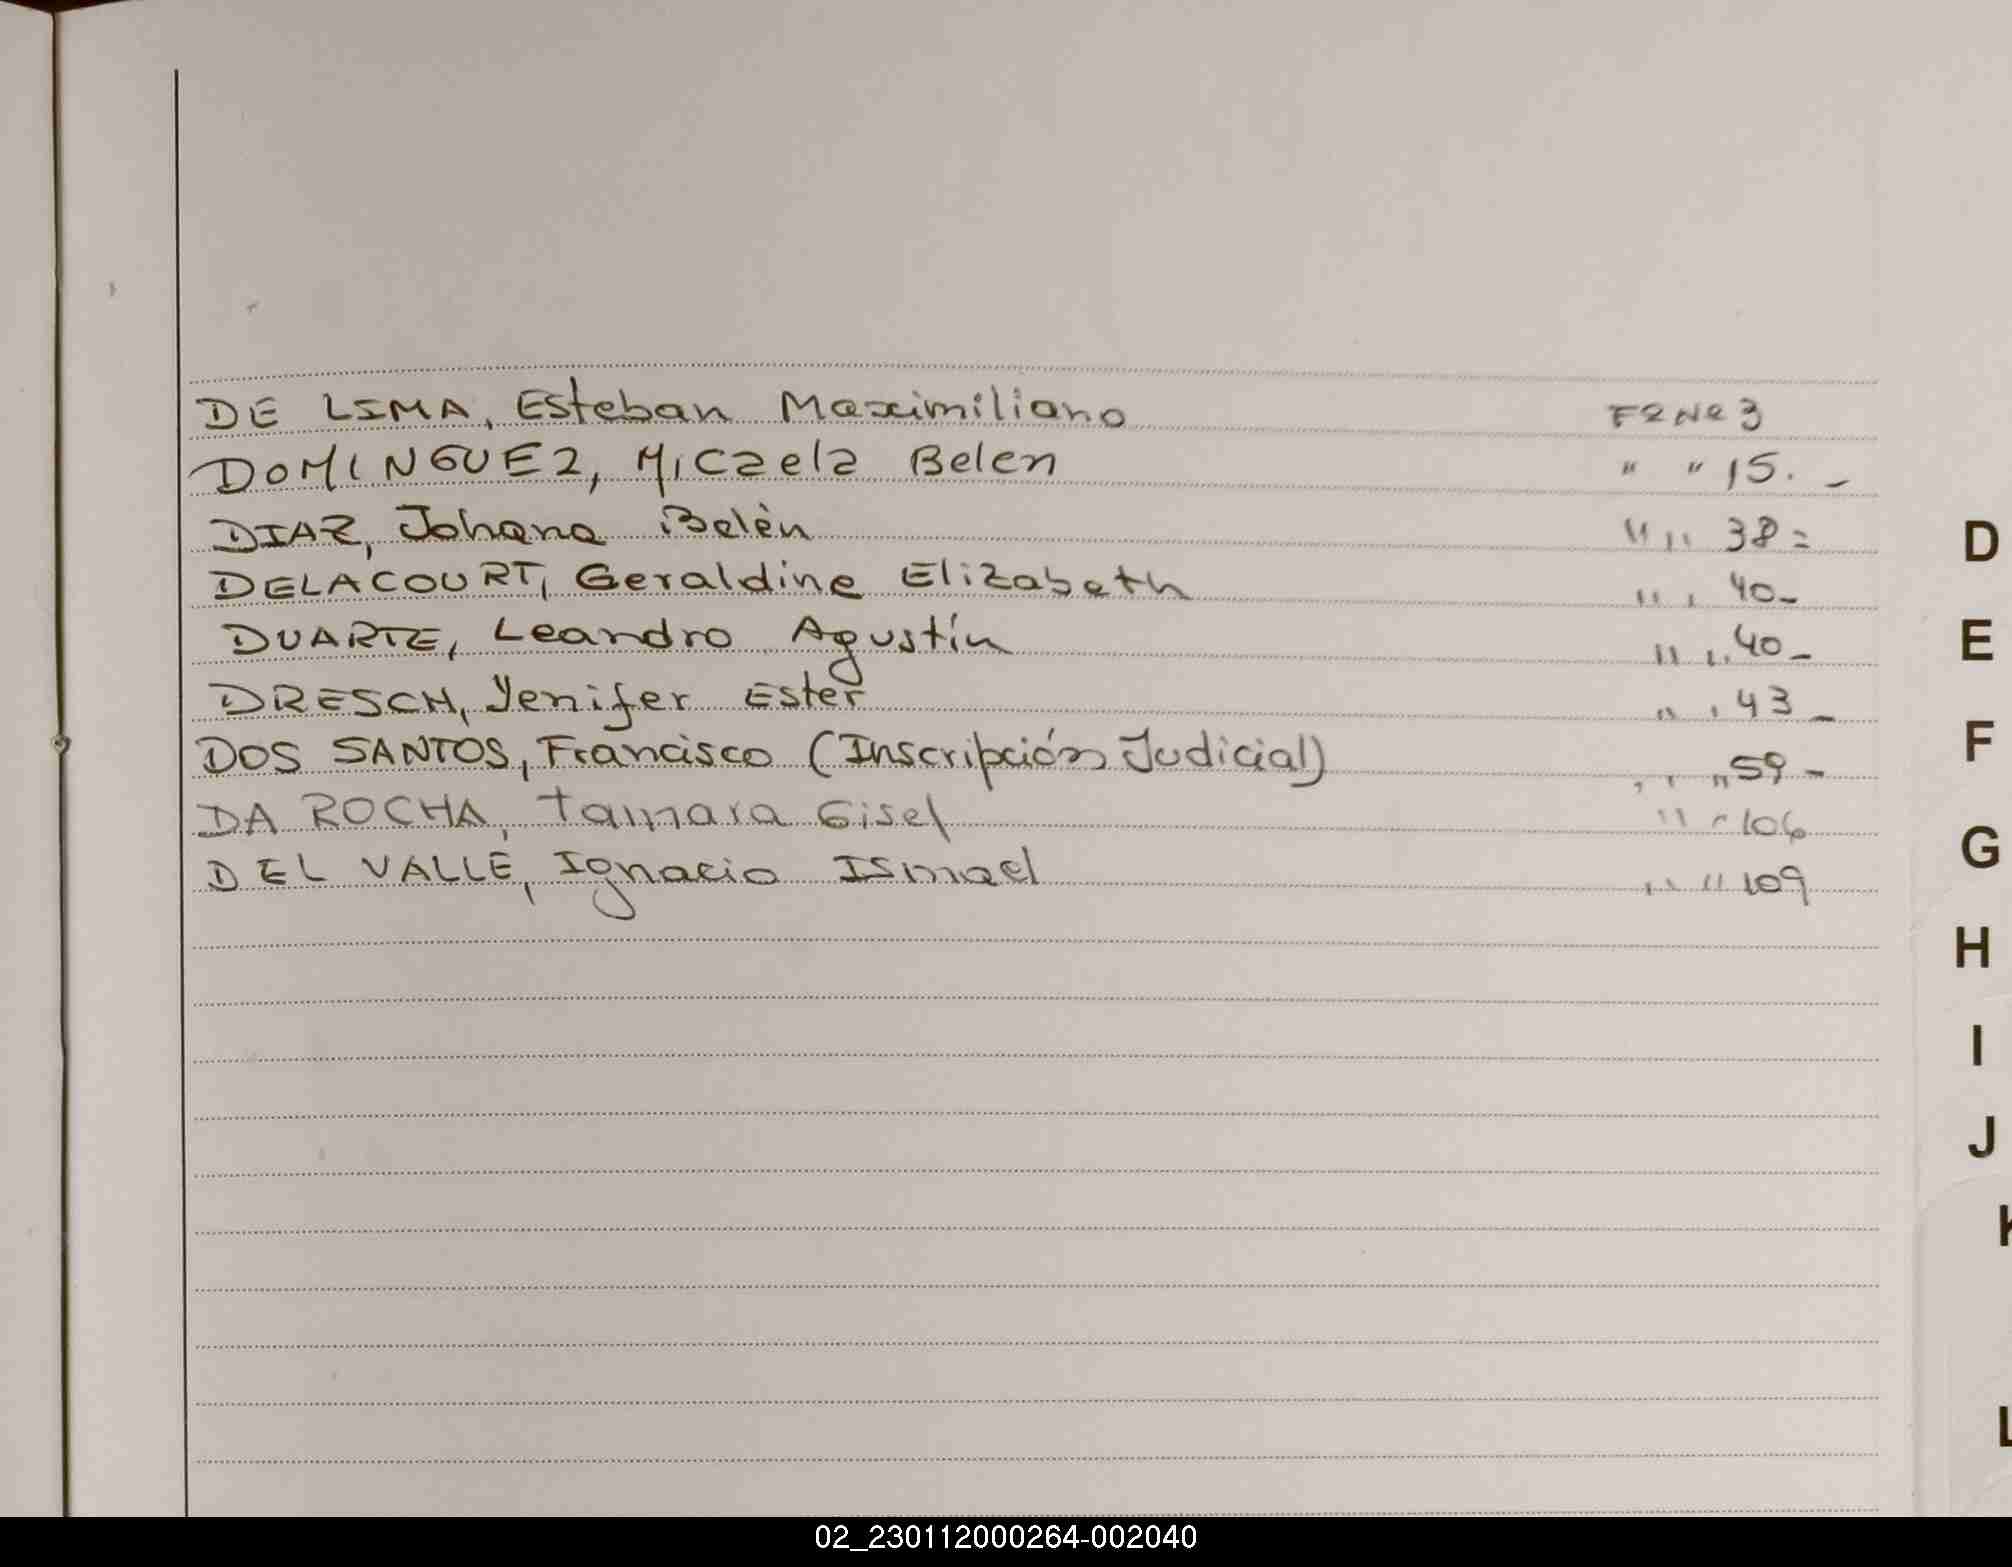 DE LIMA, Esteban Maximiliano Fº Nº 3
DOMINGUEZ, Micaela Belen " " 15. -
DIAZ, Johana Belèn " " 38 =
DELACOURT, Geraldine Elizabeth " " 40 -
DUARTE, Leandro Agustín " " 40 -
DRESCH, Yenifer Ester " " 43 -
DOS SANTOS, Francisco (Inscripción Judicial) " " 59 -
DA ROCHA, Tamara Gisel " " 106
DEL VALLE, Ignacio Ismael " " 109
D
E
F
G
H
I
J
K
L
02_230112000264-002040